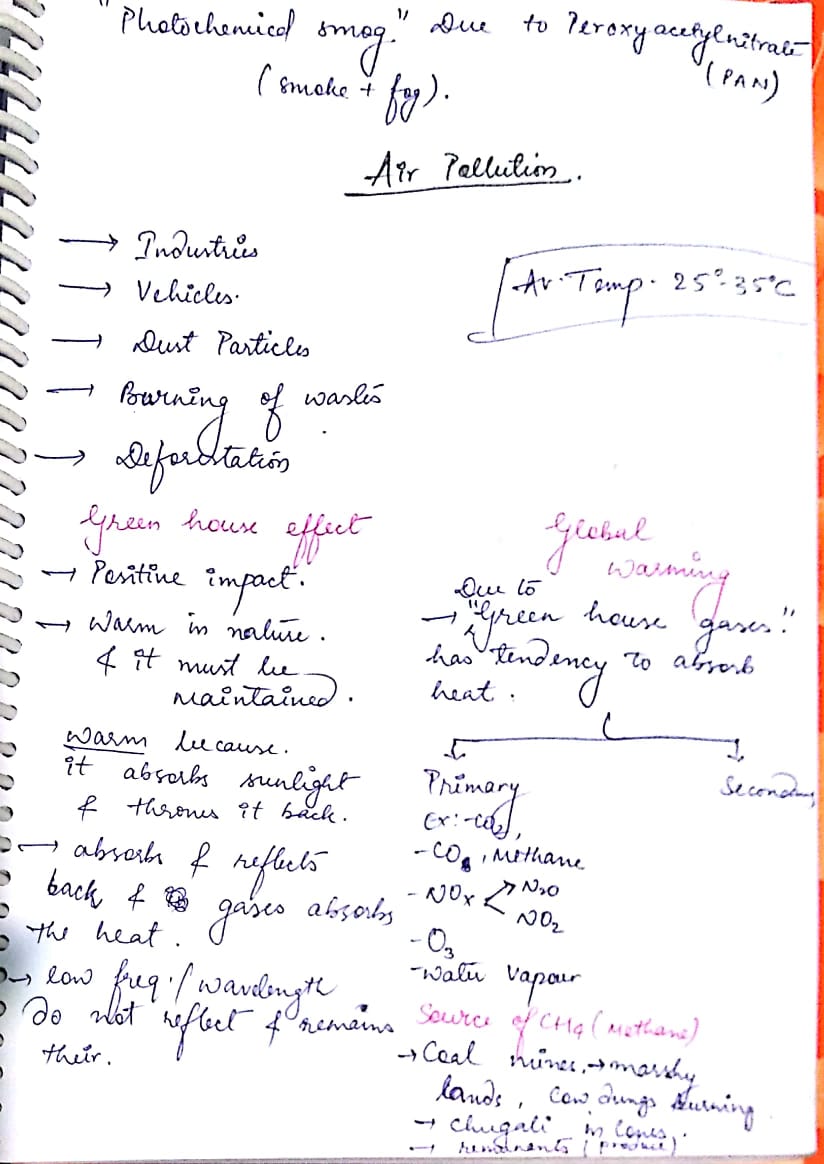 "Photochemical smog." Due to Peroxyacetylnitrate
(PAN)
(smoke + fog).
Air Pollution.
→ Industries
→ Vehicles.
→ Dust Particles
→ Burning of wastes
→ Deforestation
Av. Temp. 25°-35°C
Green house effect
→ Positive impact.
→ Warm in nature.
& it must be
maintained.
warm because.
it absorbs sunlight
& throws it back.
→ absorbs & reflects
back & gases absorbs
the heat.
→ low freq./wavelength
do not reflect & remains
their.
Global
Warming
Due to
→ "Green house gases."
has tendency to absorb
heat.
Primary
Secondary
Ex:-CO2,
-CO, Methane
-NOx N2O
NO2
-O3
-Water Vapour
Source of CH4 (Methane)
→ Coal mines, → marshy
lands, Cow dungs burning
→ chugali in
→ (produce)